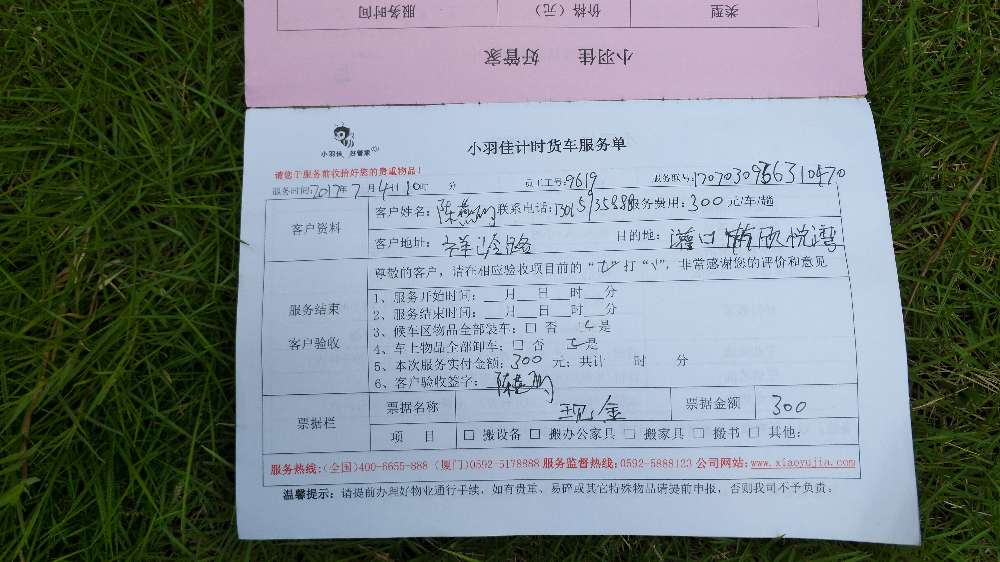 类型 价格（元） 服务时间
小羽佳 好管家
小羽佳 好管家
小羽佳计时货车服务单
请您于服务前收拾好您的贵重物品！
服务时间：2017年7月4日10时 分 员工工号：9619 服务账号：
客户资料
客户姓名： 联系电话： 服务费用：300元/车/趟
客户地址： 目的地：灌口
尊敬的客户，请在相应验收项目前的“□”打“√”，非常感谢您的评价和意见
服务结束
客户验收
1、服务开始时间：___月___日___时___分
2、服务结束时间：___月___日___时___分
3、候车区物品全部装车：□ 否 是
4、车上物品全部卸车：□ 否 是
5、本次服务实付金额：300 元；共计 时 分
6、客户验收签字：
票据栏
票据名称 现金 票据金额 300
项 目 □ 搬设备 □ 搬办公家具 □ 搬家具 □ 搬书 □ 其他：
服务热线：(全国)400-6655-888 (厦门)0592-5178888 服务监督热线：0592-5888123 公司网站：www.xiaoyujia.com
温馨提示：请提前办理好物业通行手续，如有贵重、易碎或其它特殊物品请提前申报，否则我司不予负责。